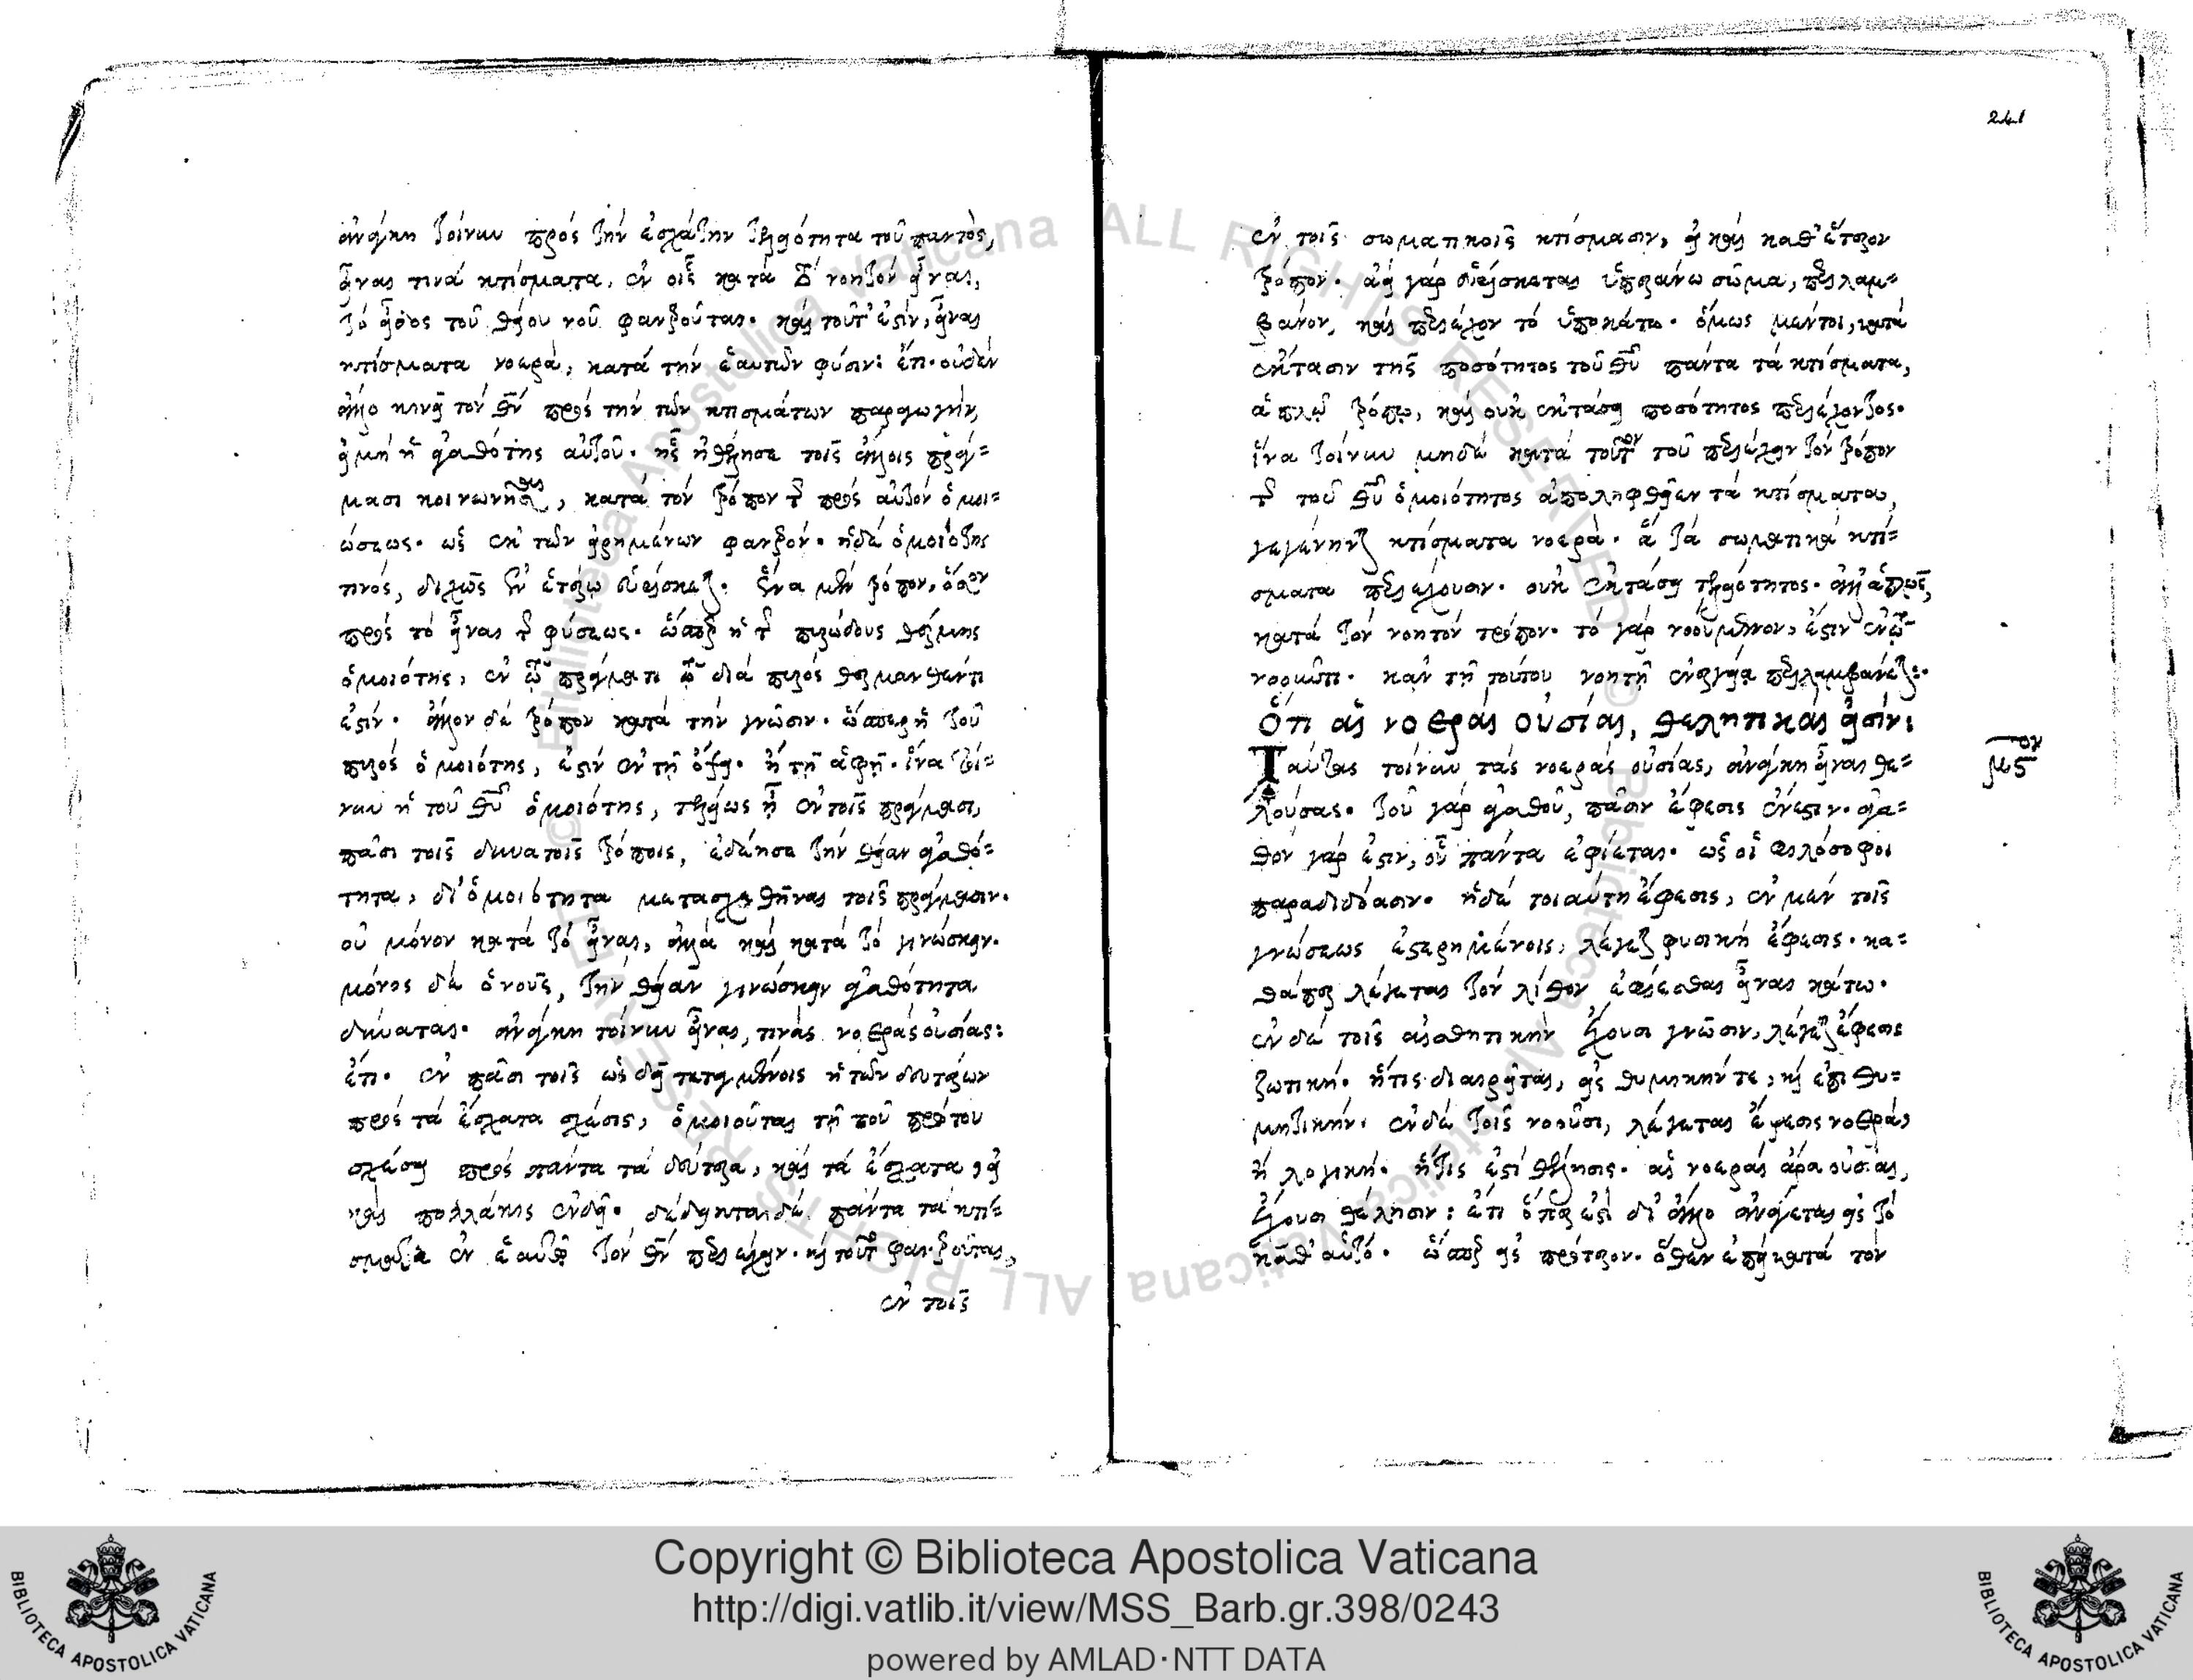 ἀνάγκη τοίνυν πρὸς τὴν ἐσχάτην τελειότητα τοῦ παντὸς,
εἶναι τινὰ κτίσματα, ἐν οἷς κατὰ τὸ νοητὸν εἶναι,
τὸ εἶδος τοῦ θείου νοῦ φανεροῦται. καὶ τοῦτ' ἐστὶν, εἶναι
κτίσματα νοερὰ, κατὰ τὴν ἑαυτῶν φύσιν: ἔτι. οὐδὲν
ἄλλο κινεῖ τὸν θν πρὸς τὴν τῶν κτισμάτων παραγωγὴν,
εἰ μὴ ἡ ἀγαθότης αὐτοῦ. ἧς ἠθέλησε τοῖς ἄλλοις πράγ=
μασι κοινωνῆσαι, κατὰ τὸν τρόπον τῆς πρὸς αὐτὸν ὁμοι=
ώσεως. ὡς ἐκ τῶν εἰρημένων φανερόν. ἡ δὲ ὁμοιότης
τινός, διχῶς ἐν ἑτέρῳ εὑρίσκεται. ἕνα μὲν τρόπον, ὅσον
πρὸς τὸ εἶναι τῆς φύσεως. ὥσπερ ἡ τῆς πυρώδους θέρμης
ὁμοιότης, ἐν τῷ πράγματι τῷ διὰ πυρὸς θερμανθέντι
ἐστίν. ἄλλον δὲ τρόπον κατὰ τὴν γνῶσιν. ὥσπερ ἡ τοῦ
πυρὸς ὁμοιότης, ἐστὶν ἐν τῇ ὄψει. ἢ τῇ ἁφῇ. ἵνα τοί=
νυν ἡ τοῦ θυ ὁμοιότης, τελείως ᾖ ἐν τοῖς πράγμασι,
πᾶσι τοῖς δυνατοῖς τρόποις, ἐδέησε τὴν θείαν ἀγαθό=
τητα, δι' ὁμοιότητα μετασχεθῆναι τοῖς πράγμασιν.
οὐ μόνον κατὰ τὸ εἶναι, ἀλλὰ καὶ κατὰ τὸ γινώσκειν.
μόνος δὲ ὁ νοῦς, τὴν θείαν γινώσκειν ἀγαθότητα
δύναται. ἀνάγκη τοίνυν εἶναι, τινὰς νοερὰς οὐσίας:
ἔτι. ἐν πᾶσι τοῖς ὡς δεῖ τεταγμένοις ἡ τῶν δευτέρων
πρὸς τὰ ἔσχατα σχέσις, ὁμοιοῦται τῇ τοῦ πρώτου
σχέσει πρὸς πάντα τὰ δεύτερα, καὶ τὰ ἔσχατα, εἰ
καὶ πολλάκις ἐνδεῖ. δέδεικται δὲ πάντα τὰ κτί=
σματα ἐν ἑαυτῷ τὸν θν περιέχειν. καὶ τοῦτο φανεροῦται,
ἐν τοῖς
241
ἐν τοῖς σωματικοῖς κτίσμασιν, εἰ καὶ καθ' ἕτερον
τρόπον. ἀεὶ γὰρ εὑρίσκεται ὑπεράνω σῶμα, περιλαμ=
βάνον, καὶ περιέχον τὸ ὑποκάτω. ὅμως μέντοι, κατὰ
ἔκτασιν τῆς ποσότητος τοῦ θυ πάντα τὰ κτίσματα,
ἁπλῷ τρόπῳ, καὶ οὐκ ἐκτάσει ποσότητος περιέχοντος.
ἵνα τοίνυν μηδὲ κατὰ τοῦτον τοῦ περιέχειν τὸν τρόπον
τῆς τοῦ θυ ὁμοιότητος ἀπολειφθεῖεν τὰ κτίσματα,
γεγένηνται κτίσματα νοερὰ. ἃ τὰ σωματικὰ κτί=
σματα περιέχουσιν. οὐκ ἐκτάσει ποσότητος. ἀλλ' ἁπλῶς,
κατὰ τὸν νοητὸν τρόπον. τὸ γὰρ νοούμενον, ἐστὶν ἐν τῷ
νοοῦντι. κἀν τῇ τούτου νοητῇ ἐνεργείᾳ περιλαμβάνεται:
Ὅτι αἱ νοεραὶ οὐσίαι, θελητικαί εἰσιν:
μςον
Ταύτας τοίνυν τὰς νοερὰς οὐσίας, ἀνάγκη εἶναι θε=
λούσας. τοῦ γὰρ ἀγαθοῦ, πᾶσιν ἔφεσις ἔνεστιν. ἀγα=
θὸν γάρ ἐστιν, οὗ πάντα ἐφίεται. ὡς οἱ φιλόσοφοι
παραδιδόασιν. ἡ δὲ τοιαύτη ἔφεσις, ἐν μὲν τοῖς
γνώσεως ἐστερημένοις, λέγεται φυσικὴ ἔφεσις. κα=
θάπερ λέγεται τὸν λίθον ἐφίεσθαι εἶναι κάτω.
ἐν δὲ τοῖς αἰσθητικὴν ἔχουσι γνῶσιν, λέγεται ἔφεσις
ζωτική. ἥτις διαιρεῖται, εἰς θυμικήν τε, καὶ ἐπιθυ=
μητικήν. ἐν δὲ τοῖς νοοῦσι, λέγεται ἔφεσις νοερὰ,
ἢ λογική. ἥτις ἐστὶ θέλησις. αἱ νοεραὶ ἄρα οὐσίαι,
ἔχουσι θέλησιν: ἔτι ὅπερ ἐστὶ δι' ἄλλο ἀνάγεται εἰς τὸ
καθ' αὑτό. ὥσπερ εἰς πρότερον. ὅθεν ἐπεὶ κατὰ τὸν
Copyright © Biblioteca Apostolica Vaticana
http://digi.vatlib.it/view/MSS_Barb.gr.398/0243
powered by AMLAD·NTT DATA
BIBLIOTECA APOSTOLICA VATICANA
BIBLIOTECA APOSTOLICA VATICANA